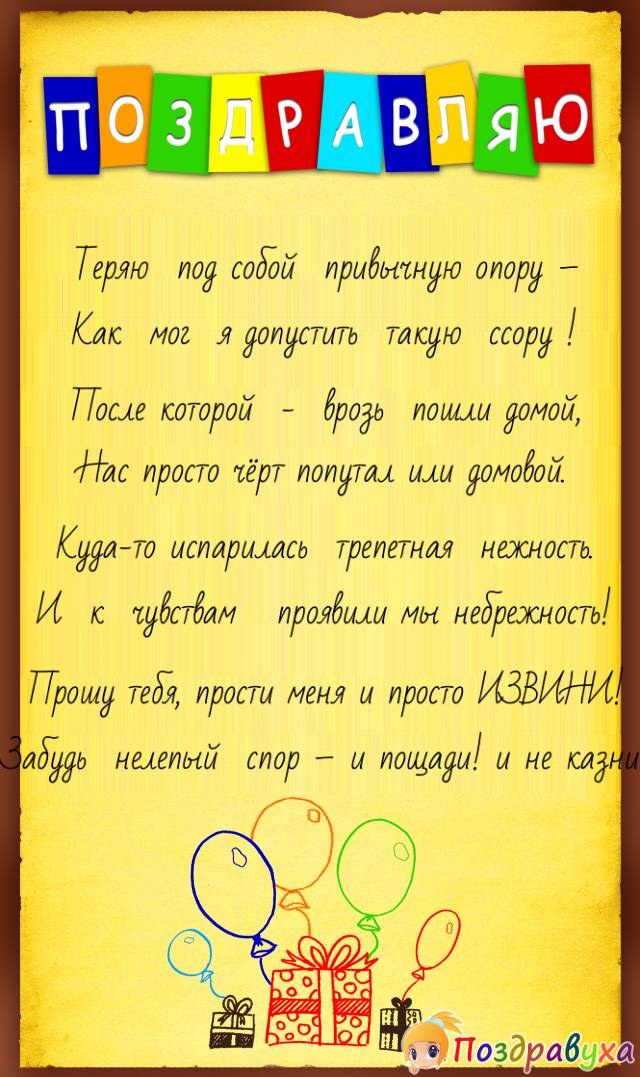 ПОЗДРАВЛЯЮ
Теряю под собой привычную опору –
Как мог я допустить такую ссору !
После которой - врозь пошли домой,
Нас просто чёрт попутал или домовой.
Куда-то испарилась трепетная нежность.
И к чувствам проявили мы небрежность!
Прошу тебя, прости меня и просто ИЗВИНИ!
Забудь нелепый спор – и пощади! и не казни
Поздравуха